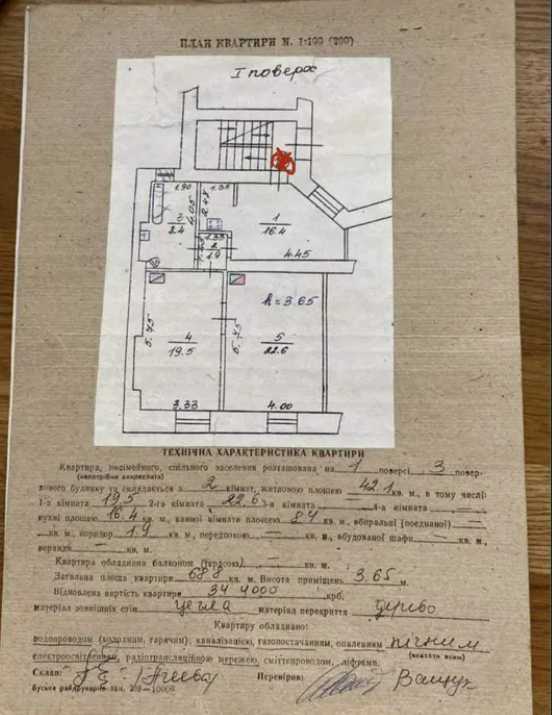 ПЛАН КВАРТИРИ N. 1:100 (200)
I поверх
1.90 1.35
4.05 2.48
3
2.4
1
16.4
1.35
2
1.9
4.45
h=3.65
5.75
4
19.5
5.75
5
22.6
3.33 4.00
ТЕХНІЧНА ХАРАКТЕРИСТИКА КВАРТИРИ
Квартира, посімейного, спільного заселення розташована на 1 поверсі 3 повер-
(непотрібне закреслити)
хового будинку та складається з 2 кімнат, житловою площею 42.1 кв. м., в тому числі:
1-а кімната 19,5 2-га кімната 22.6 3-я кімната 4-а кімната
кухні площею 16.4 кв. м., ванної кімнати площею 8.4 кв. м., вбиральні (поєднаної) —
кв. м., коридор 1.9 кв. м., передпокою — кв. м., вбудованої шафи — кв. м.,
веранди — кв. м.
Квартира обладнана балконом (терасою) — кв. м.
Загальна площа квартири 68.8 кв. м. Висота приміщень 3.65 м.
Відновлена вартість квартири 344000 крб.
матеріал зовнішніх стін цегла матеріал перекриття дерево
Квартиру обладнано:
водопроводом (холодним, гарячим), каналізацією, газопостачанням, опаленням пічним
(вказати яким)
електроосвітленням, радіотрансляційною мережею, сміттєпроводом, ліфтами.
Склав: Перевірив: Ващук
Буське райдрукарня зам.